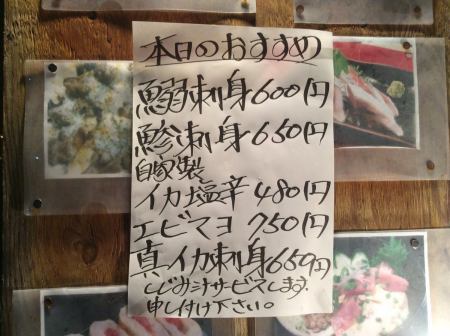 本日のおすすめ
鰯刺身600円
鯵刺身650円
自家製
イカ塩辛480円
エビマヨ750円
真イカ刺身650円
しじみ汁サービスします。
申し付け下さい。